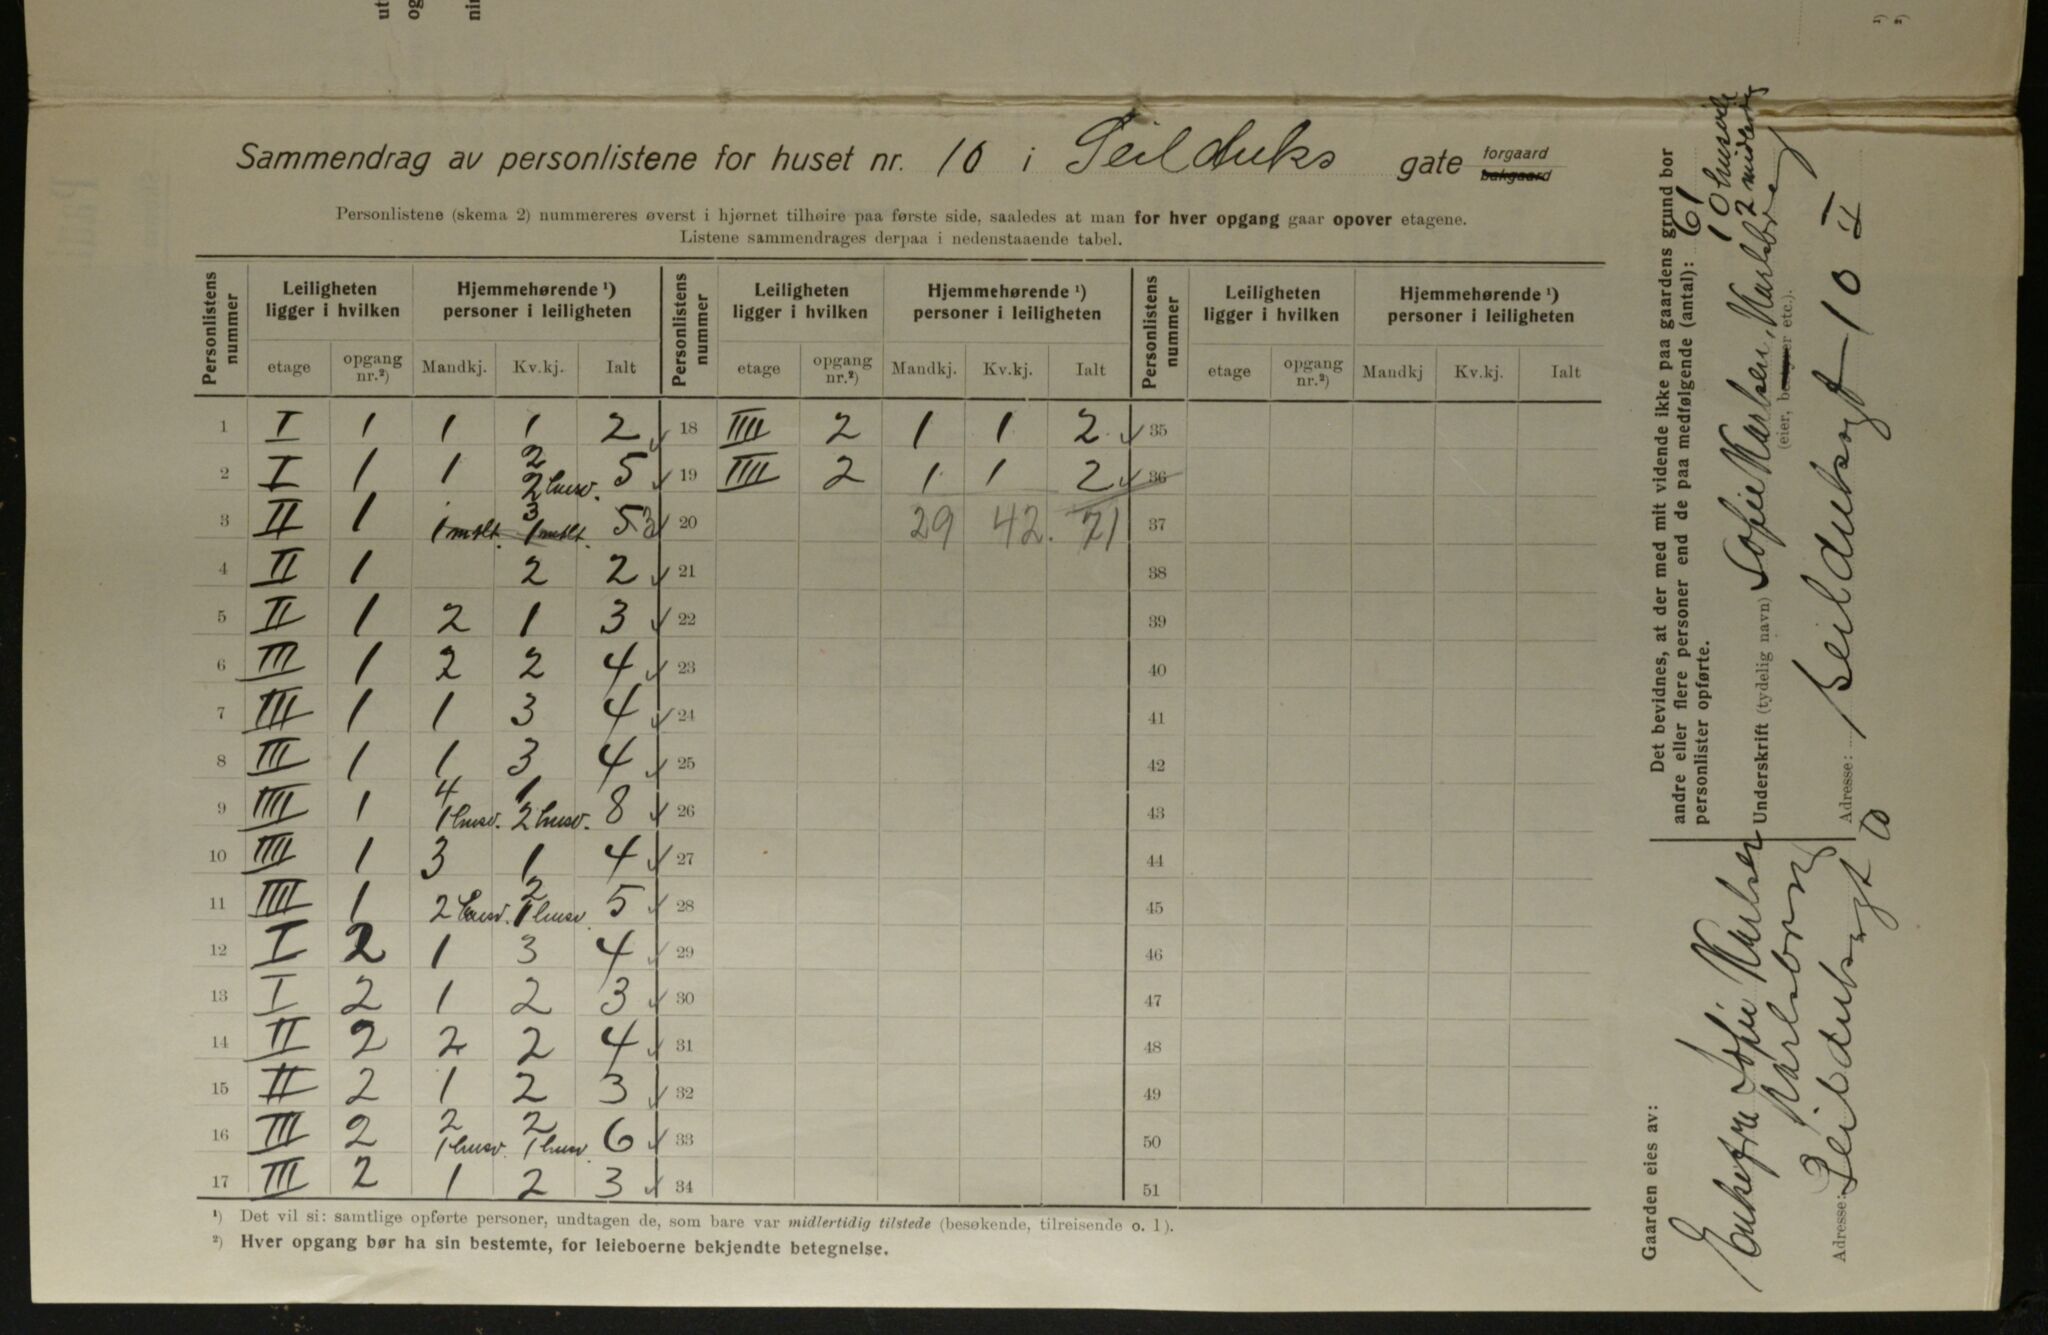 Sammendrag av personlistene for huset nr. 10 i Seilduks gate forgaard bakgaard
Personlistene (skema 2) nummereres øverst i hjørnet tilhøire paa første side, saaledes at man for hver opgang gaar opover etagene.
Listene sammendrages derpaa i nedenstaaende tabel.
Personlistens nummer | Leiligheten ligger i hvilken | Hjemmehørende ¹) personer i leiligheten | Personlistens nummer | Leiligheten ligger i hvilken | Hjemmehørende ¹) personer i leiligheten | Personlistens nummer | Leiligheten ligger i hvilken | Hjemmehørende ¹) personer i leiligheten
etage | opgang nr.²) | Mandkj. | Kv.kj. | Ialt | etage | opgang nr.²) | Mandkj. | Kv.kj. | Ialt | etage | opgang nr.²) | Mandkj | Kv.kj. | Ialt
1 | I | 1 | 1 | 1 | 2 | 18 | IIII | 2 | 1 | 1 | 2 | 35
2 | I | 1 | 1 | 2 2 husv. | 5 | 19 | IIII | 2 | 1 | 1 | 2 | 36
3 | II | 1 | 1 mtlt. | 3 1 mtlt. | 5 3 | 20 | 29 | 42. | 71 | 37
4 | II | 1 | 2 | 2 | 21 | 38
5 | II | 1 | 2 | 1 | 3 | 22 | 39
6 | III | 1 | 2 | 2 | 4 | 23 | 40
7 | III | 1 | 1 | 3 | 4 | 24 | 41
8 | III | 1 | 1 | 3 | 4 | 25 | 42
9 | IIII | 1 | 4 1 husv. | 1 2 husv. | 8 | 26 | 43
10 | IIII | 1 | 3 | 1 | 4 | 27 | 44
11 | IIII | 1 | 2 husv. | 2 1 husv. | 5 | 28 | 45
12 | I | 2 | 1 | 3 | 4 | 29 | 46
13 | I | 2 | 1 | 2 | 3 | 30 | 47
14 | II | 2 | 2 | 2 | 4 | 31 | 48
15 | II | 2 | 1 | 2 | 3 | 32 | 49
16 | III | 2 | 2 1 husv. | 2 1 husv. | 6 | 33 | 50
17 | III | 2 | 1 | 2 | 3 | 34 | 51
¹) Det vil si: samtlige opførte personer, undtagen de, som bare var midlertidig tilstede (besøkende, tilreisende o. l).
²) Hver opgang bør ha sin bestemte, for leieboerne bekjendte betegnelse.
Det bevidnes, at der med mit vidende ikke paa gaardens grund bor
andre eller flere personer end de paa medfølgende (antal): 61
10 husville
2 midlertidig
personlister opførte.
Underskrift (tydelig navn) Sofie Karlsen, Karlsborg
(eier, bestyrer etc.).
Adresse: Seilduksgt 10 II
Gaarden eies av:
Enkefru Sofie Karlsen
Karlsborg
Adresse: Seilduksgt 10